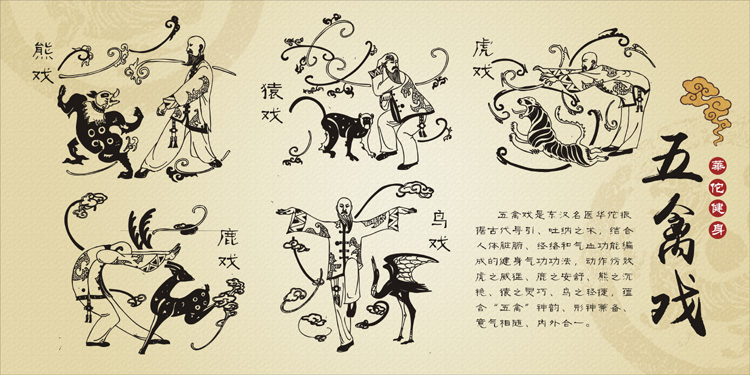 熊戏
猿戏
虎戏
鹿戏
鸟戏
五禽戏
華佗健身
五禽戏是东汉名医华佗根
据古代导引、吐纳之术、结合
人体脏腑、经络和气血功能编
成的健身气功功法，动作仿效
虎之威猛、鹿之安舒、熊之沉
稳、猿之灵巧、鸟之轻捷，蕴
含“五禽”神韵、形神兼备、
意气相随、内外合一。